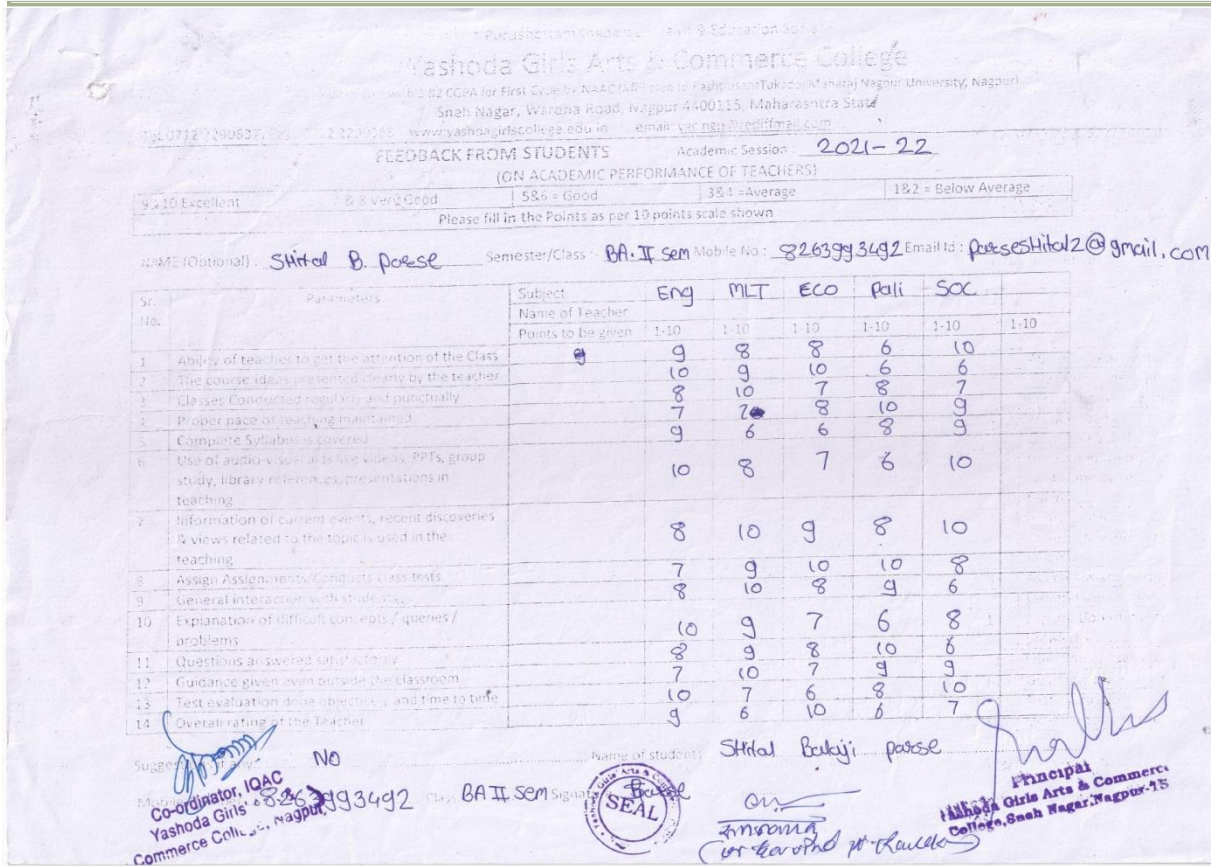 Yashoda Girls Arts & Commerce College
Sneh Nagar, Wardha Road, Nagpur 4400115, Maharasntra State
www.yashoagirlscollege.edu.in email:
FEEDBACK FROM STUDENTS Academic Session: 2021-22
(ON ACADEMIC PERFORMANCE OF TEACHERS)
9&10 Excellent 7 & 8 Very Good 5&6 = Good 3&4 =Average 1&2 = Below Average
Please fill in the Points as per 10 points scale shown
NAME (Optional) : SHital B. parse Semester/Class :- BA. II sem Mobile No : 8263993492 Email Id : parseSHital2@gmail.com
Sr. No. Parameters Subject Eng MLT ECO Pali SOC
Name of Teacher
Points to be given 1-10 1-10 1-10 1-10 1-10 1-10
1 Ability of teacher to get the attention of the Class 9 9 8 8 6 10
2 The course ideas presented clearly by the teacher 10 9 10 6 6
3 Classes Conducted regularly and punctually 8 10 7 8 7
4 Proper pace of teaching maintained 7 8 10 9
5 Complete Syllabus is covered 9 6 6 8 9
6 Use of audio-visual aids like videos, PPTs, group
study, library references, presentations in
teaching 10 8 7 6 10
7 Information of current events, recent discoveries
& views related to the topic is used in the
teaching 8 10 9 8 10
8 Assign Assignments/Conducts class tests 7 9 10 10 8
9 General interaction with students 8 10 8 9 6
10 Explanation of difficult concepts / queries /
problems 10 9 7 6 8
11 Questions answered satisfactorily 8 9 8 10 6
12 Guidance given even outside the classroom 7 10 7 9 9
13 Test evaluation done objectively and time to time 10 7 6 8 10
14 Overall rating of the Teacher 9 6 10 6 7
NO Name of student: SHital Balaji parse
8263993492 BA II Sem
Co-ordinator, IQAC
Yashoda Girls
Commerce College, Nagpur
SEAL
Principal
Yashoda Girls Arts & Commerce
College, Sneh Nagar, Nagpur-15